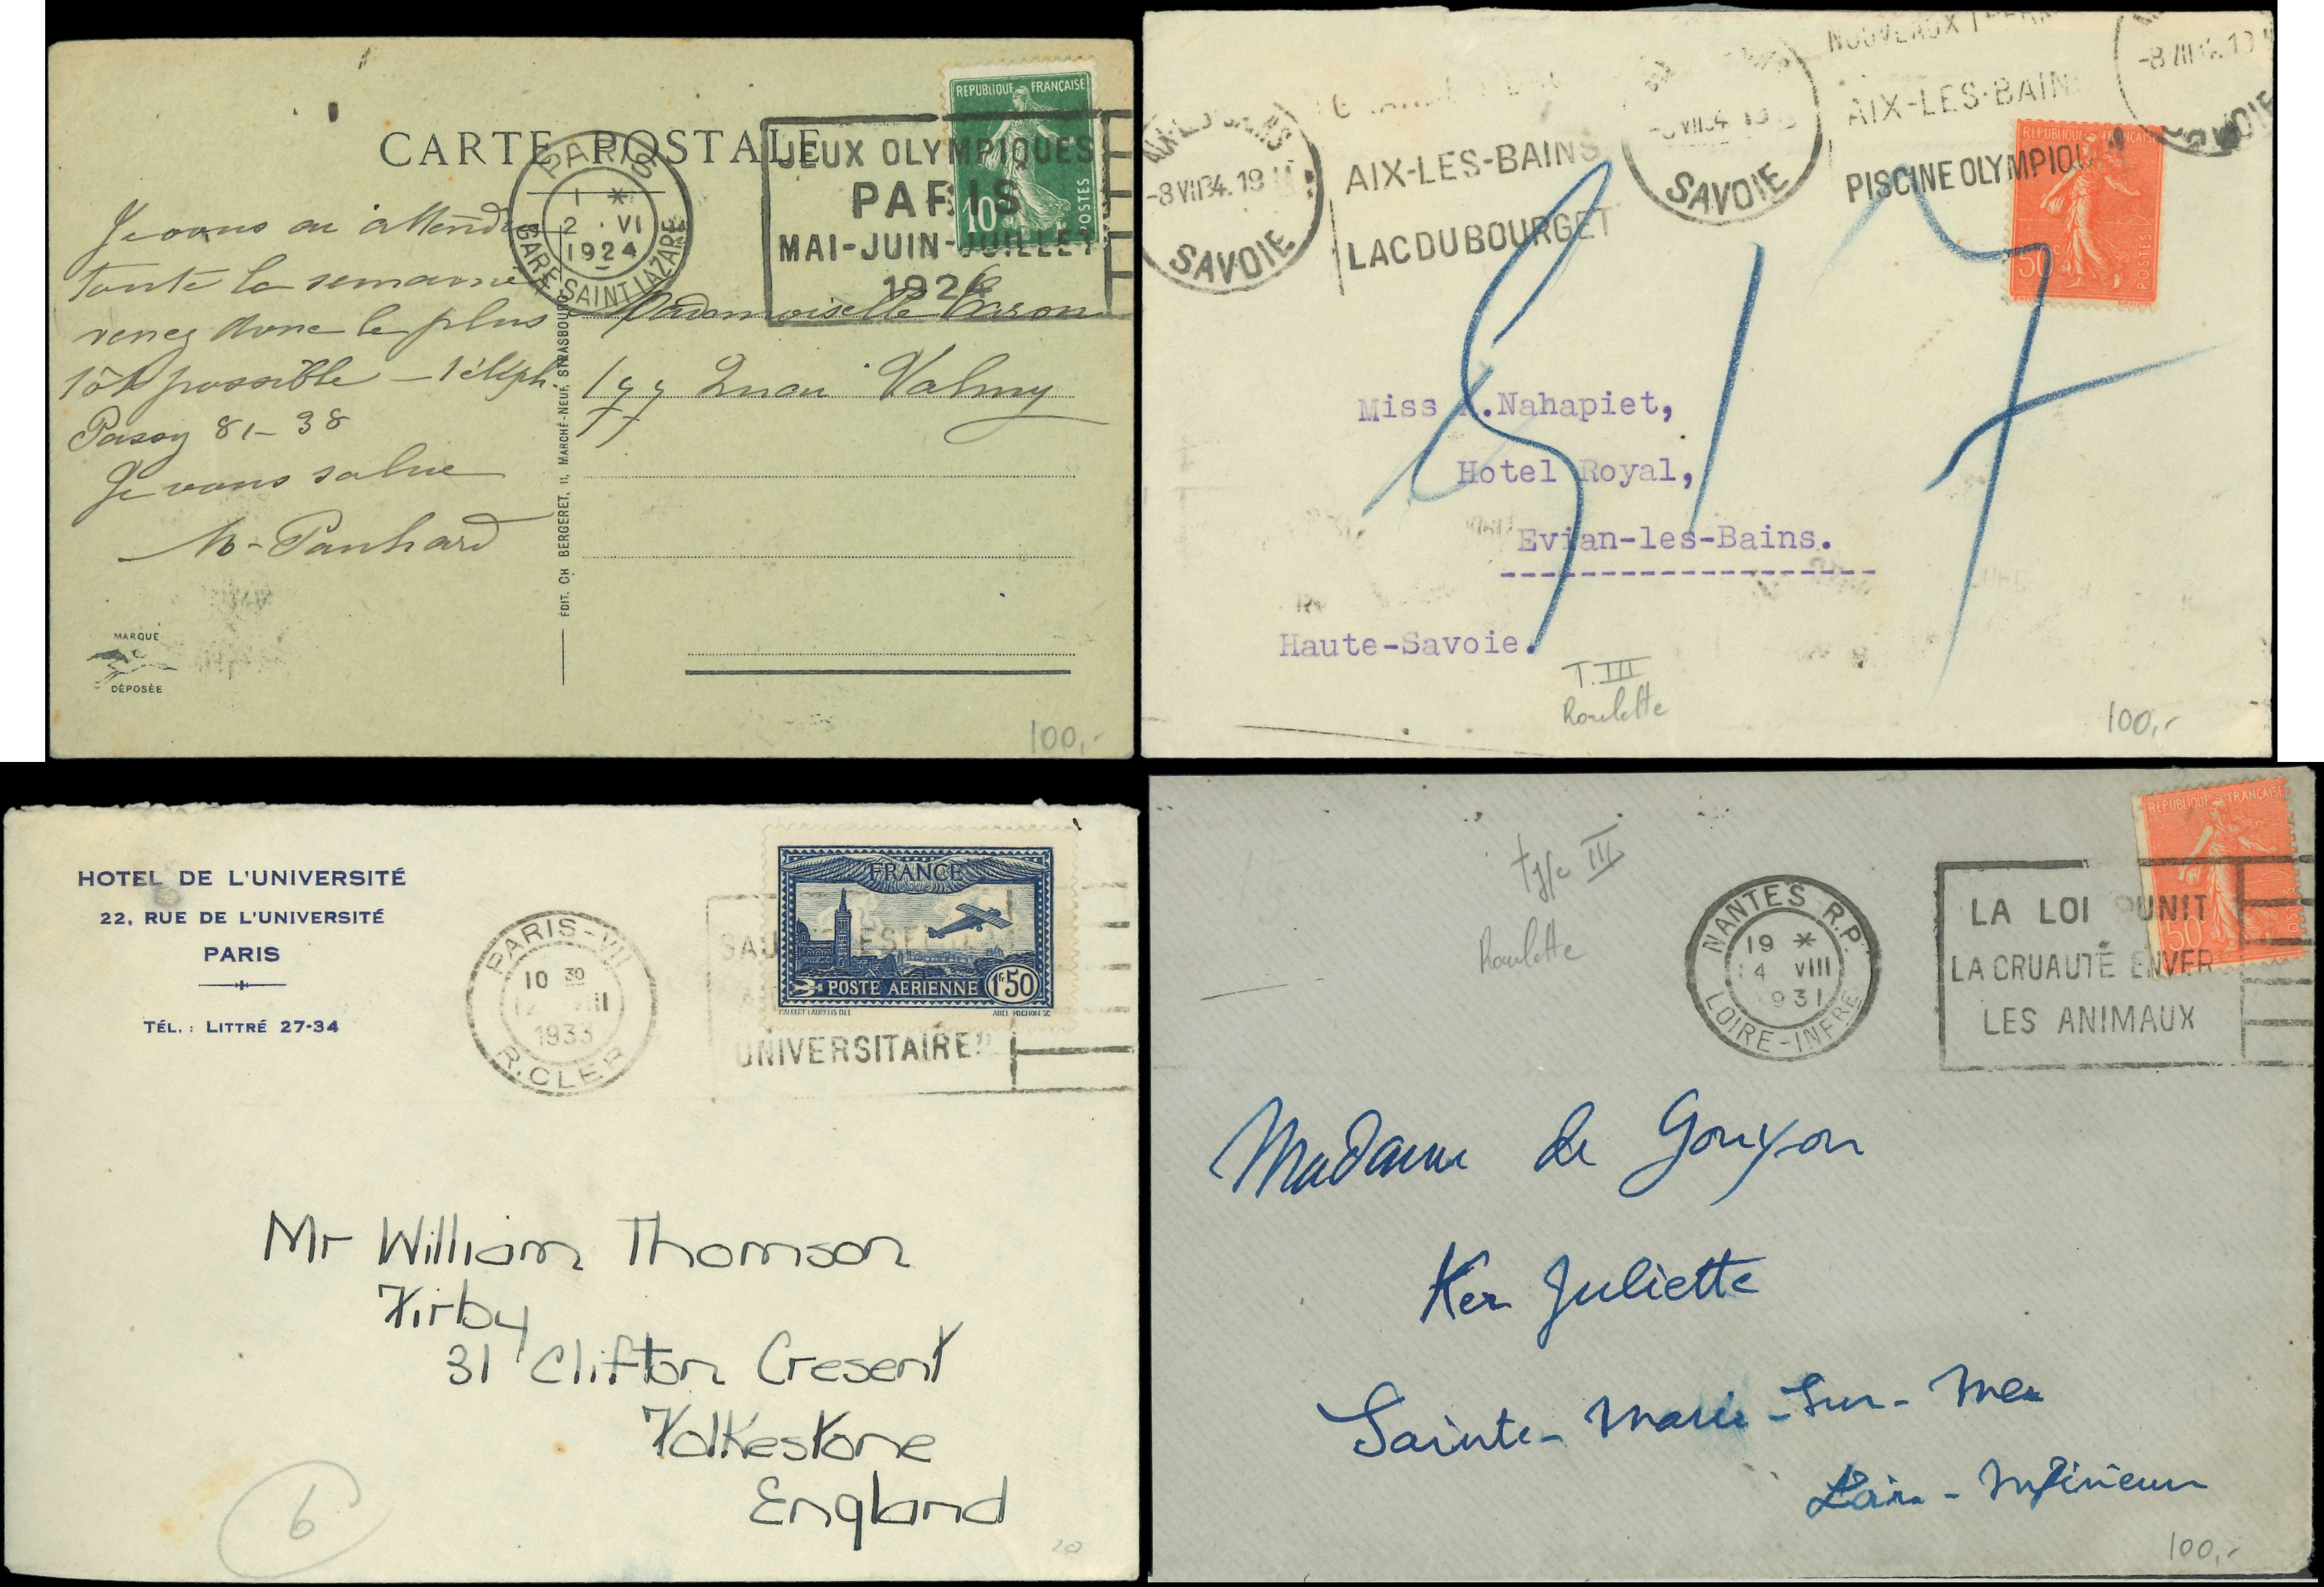 CARTE POSTALE
PARIS
1 *
2 · VI
1924
GARE SAINT LAZARE
JEUX OLYMPIQUES
PARIS
MAI-JUIN-JUILLET
1924
REPUBLIQUE FRANÇAISE
10
POSTES
Je vous ai attendu
toute la semaine
venez donc le plus
tôt possible – téléph
Passy 81-38
Je vous salue
M. Panhard
Mademoiselle
Quai Valmy
ÉDIT. CH BERGERET, 11, MARCHÉ-NEUF, STRASBOURG
MARQUE
DÉPOSÉE
100,-
AIX-LES-BAINS
-8 VII 34. 19
SAVOIE
AIX-LES-BAINS
LAC DU BOURGET
SAVOIE
NOUVEAUX
AIX-LES-BAIN
PISCINE OLYMPIQU
SAVOIE
REPUBLIQUE FRANÇAISE
50
POSTES
Miss .Nahapiet,
Hotel Royal,
Evian-les-Bains.
Haute-Savoie.
T. III
Roulette
100,-
HOTEL DE L'UNIVERSITÉ
22, RUE DE L'UNIVERSITÉ
PARIS
TÉL. : LITTRÉ 27-34
PARIS-VII
10 30
1933
R. CLER
UNIVERSITAIRE"
FRANCE
POSTE AERIENNE
1F50
ABEL MIGNON SC
Mr William Thomson
Kirby
31 Clifton Cresent
Folkestone
England
6
20
type III
Roulette
NANTES R.P.
19 *
4 VIII
1931
LOIRE-INFRE
LA LOI PUNIT
LA CRUAUTÉ ENVER
LES ANIMAUX
REPUBLIQUE FRANÇAISE
50
Madame de Gouyon
Ker Juliette
Sainte-Marie-Sur-Mer
Loire-Inférieure
100,-